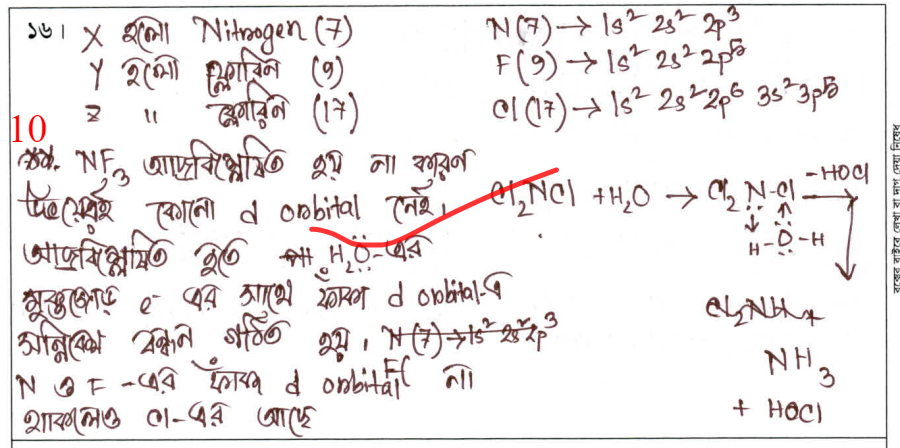 ১৬। X হলো Nitrogen (7) N(7) → 1s² 2s² 2p³
Y হলো ফ্লোরিন (9) F(9) → 1s² 2s² 2p⁵
Z " ক্লোরিন (17) Cl(17) → 1s² 2s² 2p⁶ 3s² 3p⁵
10
NF₃ আর্দ্রবিশ্লেষিত হয় না কারণ
কোনো d orbital নেই।
আর্দ্রবিশ্লেষিত হতে H₂Ö-এর
মুক্তজোড় e⁻ এর সাথে ফাঁকা d orbital-এ
সন্নিবেশ বন্ধন গঠিত হয়। N(7)→1s² 2s² 2p³
N ও F -এর ফাঁকা d orbital না
থাকলেও Cl-এর আছে
Cl₂NCl + H₂O → Cl₂N-Cl -HOCl
H-O-H
Cl₂NH +
NH₃
+ HOCl
বক্সের বাইরে লেখা বা দাগ দেয়া নিষেধ